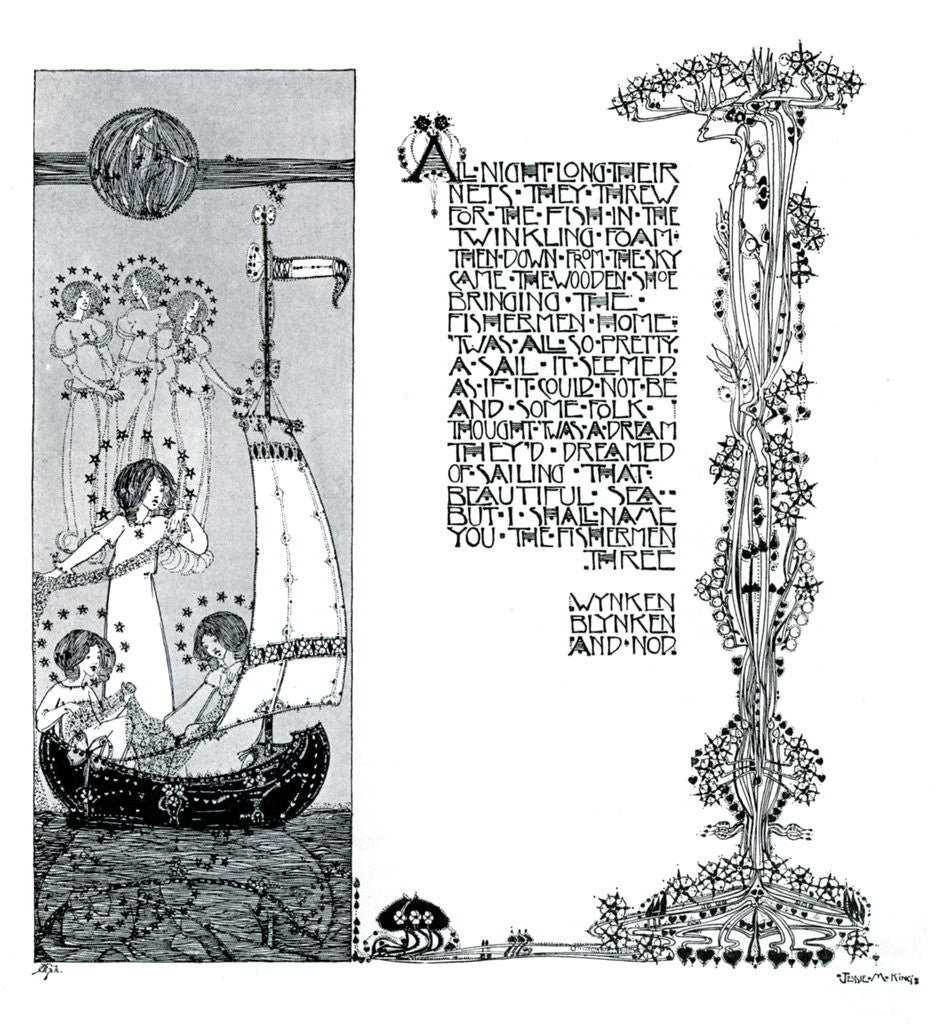 ALL·NIGHT·LONG·THEIR
NETS·THEY·THREW
FOR·THE·FISH·IN·THE
TWINKLING·FOAM·
THEN·DOWN·FROM·THE·SKY
CAME·THE·WOODEN·SHOE
BRINGING·THE·
FISHERMEN·HOME·
'TWAS·ALL·SO·PRETTY·
A·SAIL·IT·SEEMED·
AS·IF·IT·COULD·NOT·BE
AND·SOME·FOLK·
THOUGHT·'TWAS·A·DREAM
THEY'D·DREAMED
OF·SAILING·THAT·
BEAUTIFUL·SEA··
BUT·I·SHALL·NAME
YOU·THE·FISHERMEN
·THREE
·WYNKEN
BLYNKEN
AND·NOD·
·JESSIE·M·KING·